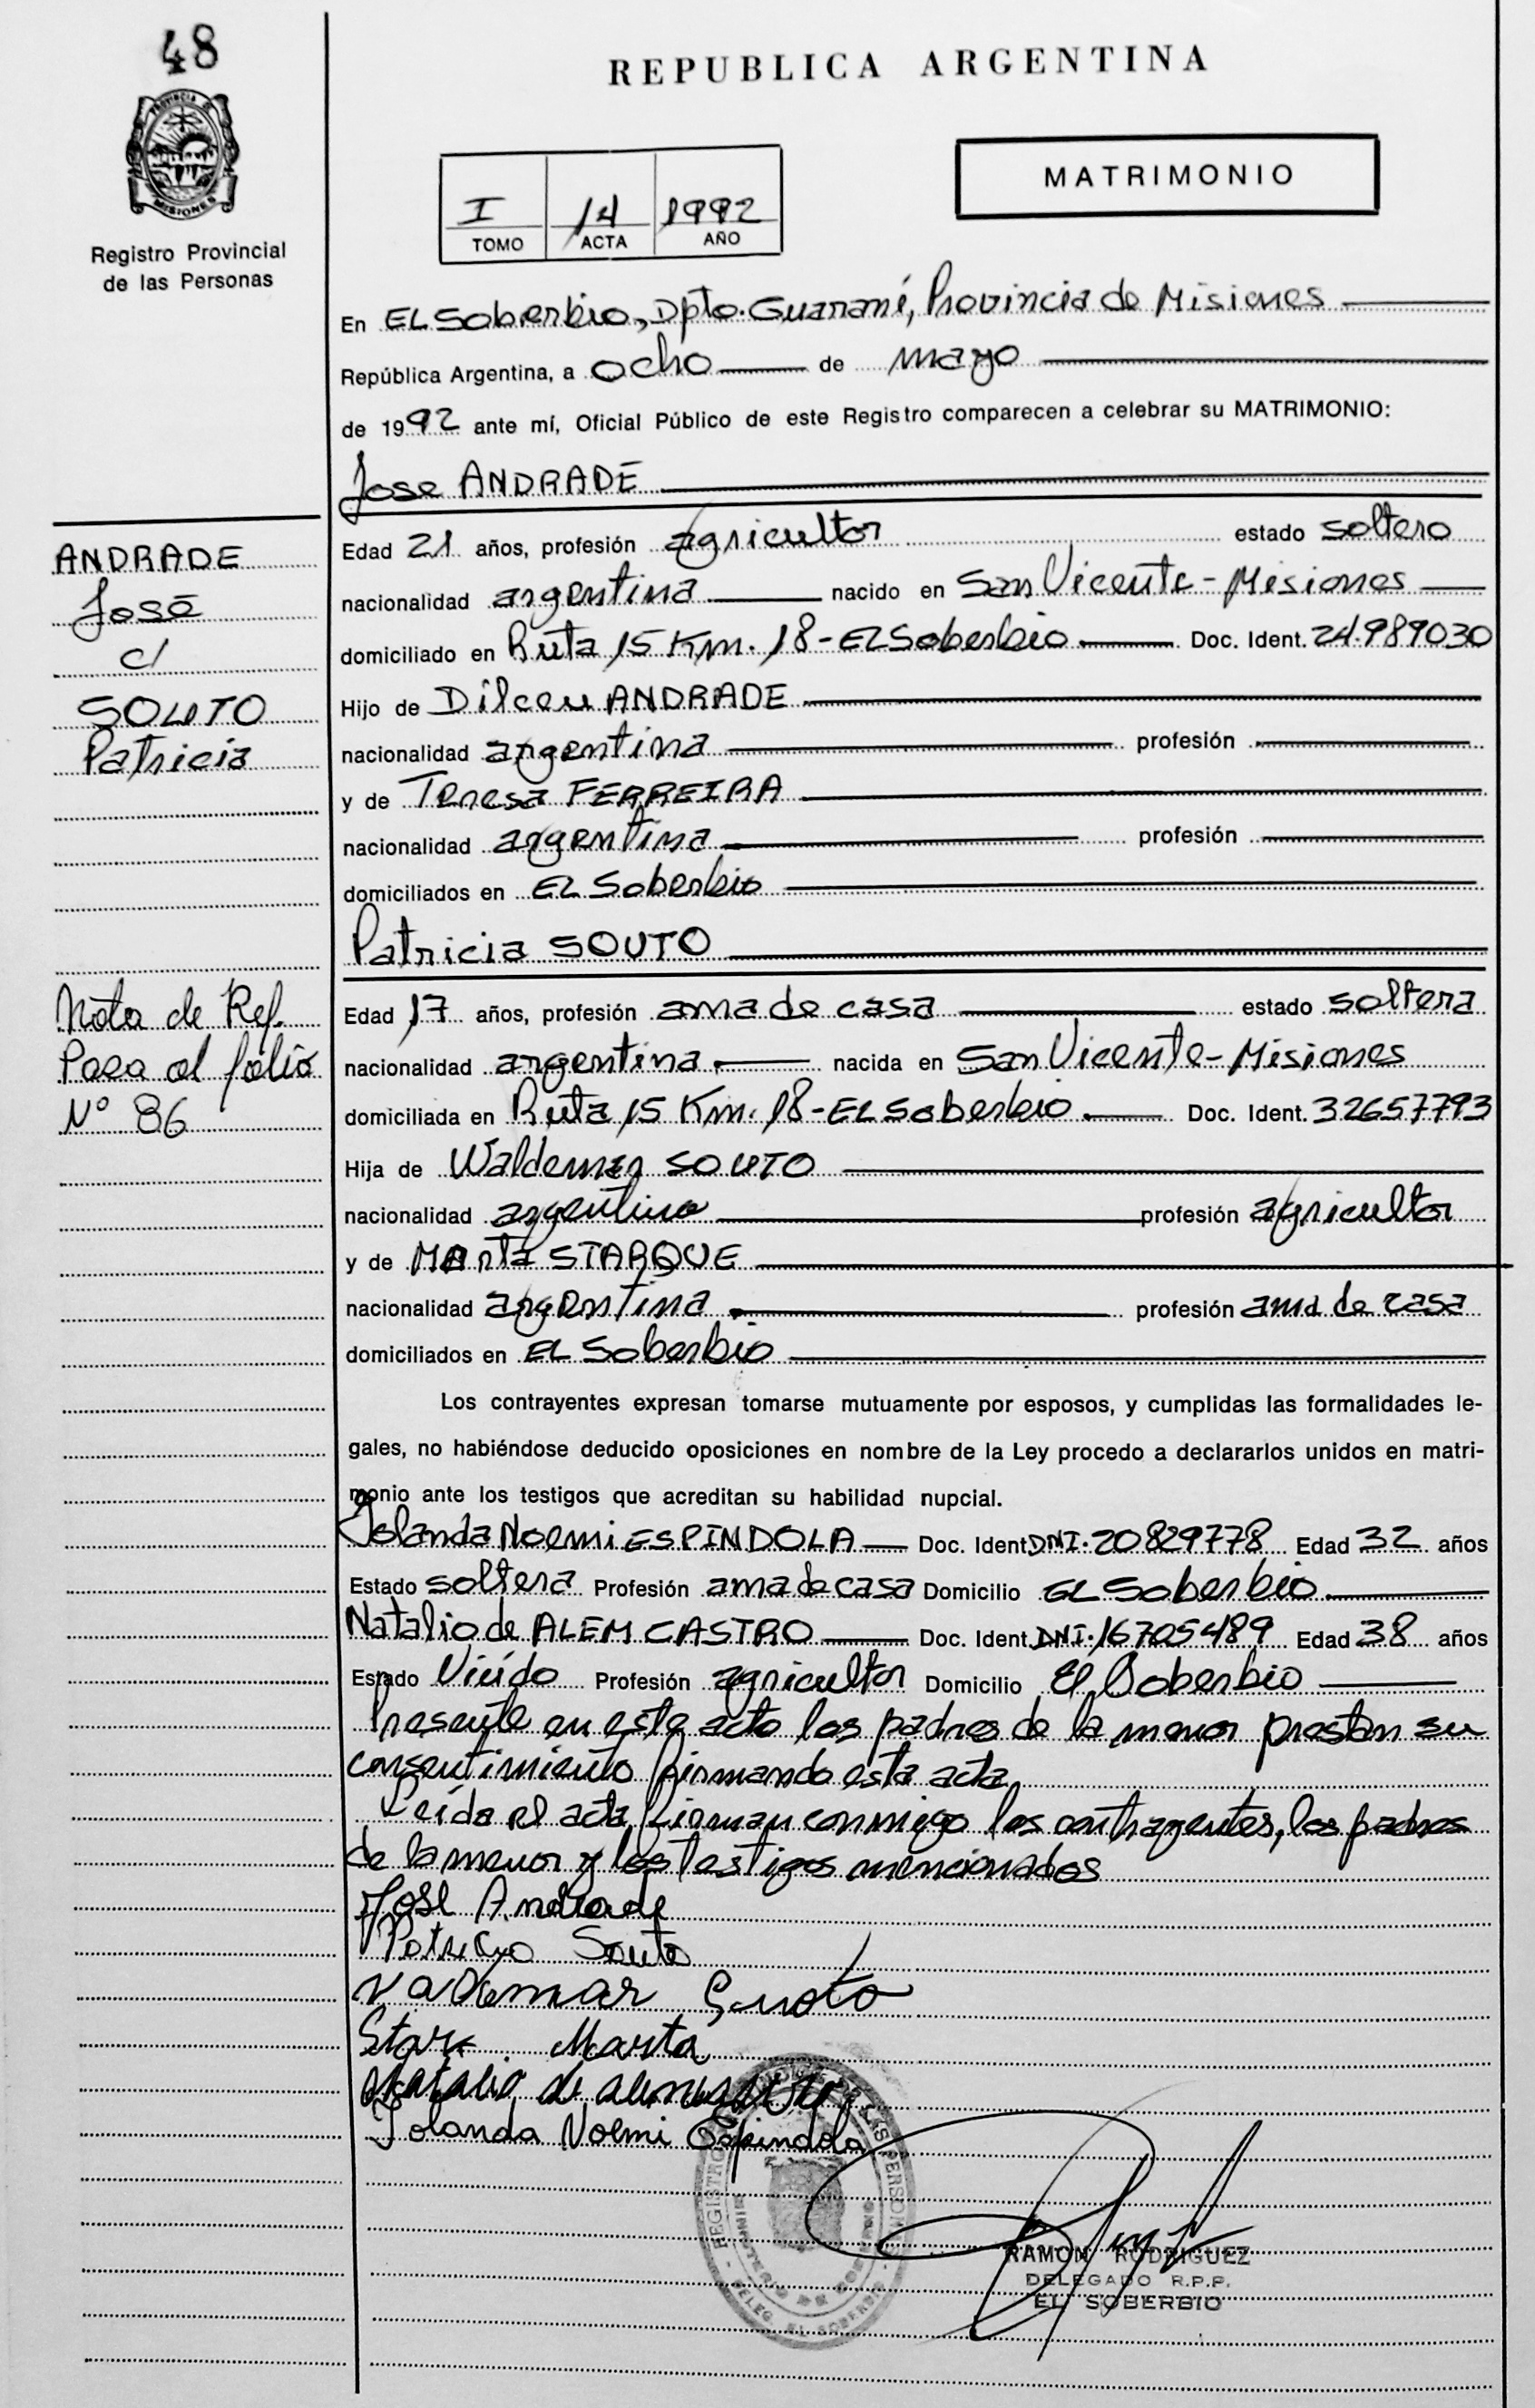 48
REPUBLICA ARGENTINA
PROVINCIA DE
MISIONES
Registro Provincial
de las Personas
I 14 1992
TOMO ACTA AÑO
MATRIMONIO
En EL Soberbio, Dpto. Guaraní, Provincia de Misiones
República Argentina, a ocho de mayo
de 1992 ante mí, Oficial Público de este Registro comparecen a celebrar su MATRIMONIO:
Jose ANDRADE
ANDRADE
José
c/
SOUTO
Patricia
Edad 21 años, profesión agricultor estado soltero
nacionalidad argentina nacido en San Vicente - Misiones
domiciliado en Ruta 15 Km. 18 - EL Soberbio Doc. Ident. 24.989030
Hijo de Dilceu ANDRADE
nacionalidad argentina profesión
y de Teresa FERREIRA
nacionalidad argentina profesión
domiciliados en EL Soberbio
Patricia SOUTO
Nota de Ref.
Pasa al folio
N° 86
Edad 17 años, profesión ama de casa estado soltera
nacionalidad argentina nacida en San Vicente - Misiones
domiciliada en Ruta 15 Km. 18 - EL Soberbio Doc. Ident. 32657793
Hija de Waldemar SOUTO
nacionalidad argentino profesión agricultor
y de Marta STARQUE
nacionalidad argentina profesión ama de casa
domiciliados en EL Soberbio
Los contrayentes expresan tomarse mutuamente por esposos, y cumplidas las formalidades le-
gales, no habiéndose deducido oposiciones en nombre de la Ley procedo a declararlos unidos en matri-
monio ante los testigos que acreditan su habilidad nupcial.
Iolanda Noemi ESPINDOLA Doc. Ident. DNI. 20829778 Edad 32 años
Estado soltera Profesión ama de casa Domicilio EL Soberbio
Natalio de ALEM CASTRO Doc. Ident. DNI. 16705489 Edad 38 años
Estado Viúdo Profesión agricultor Domicilio El Soberbio
Presente en este acto los padres de la menor prestan su
consentimiento firmando esta acta.
Leída el acta, firman conmigo los contrayentes, los padres
de la menor y los testigos mencionados
José Andrade
Patricia Souto
Valdemar Souto
Stark Marta
Natalio de alem
Iolanda Noemi Espindola
RAMON RODRIGUEZ
DELEGADO R.P.P.
EL SOBERBIO